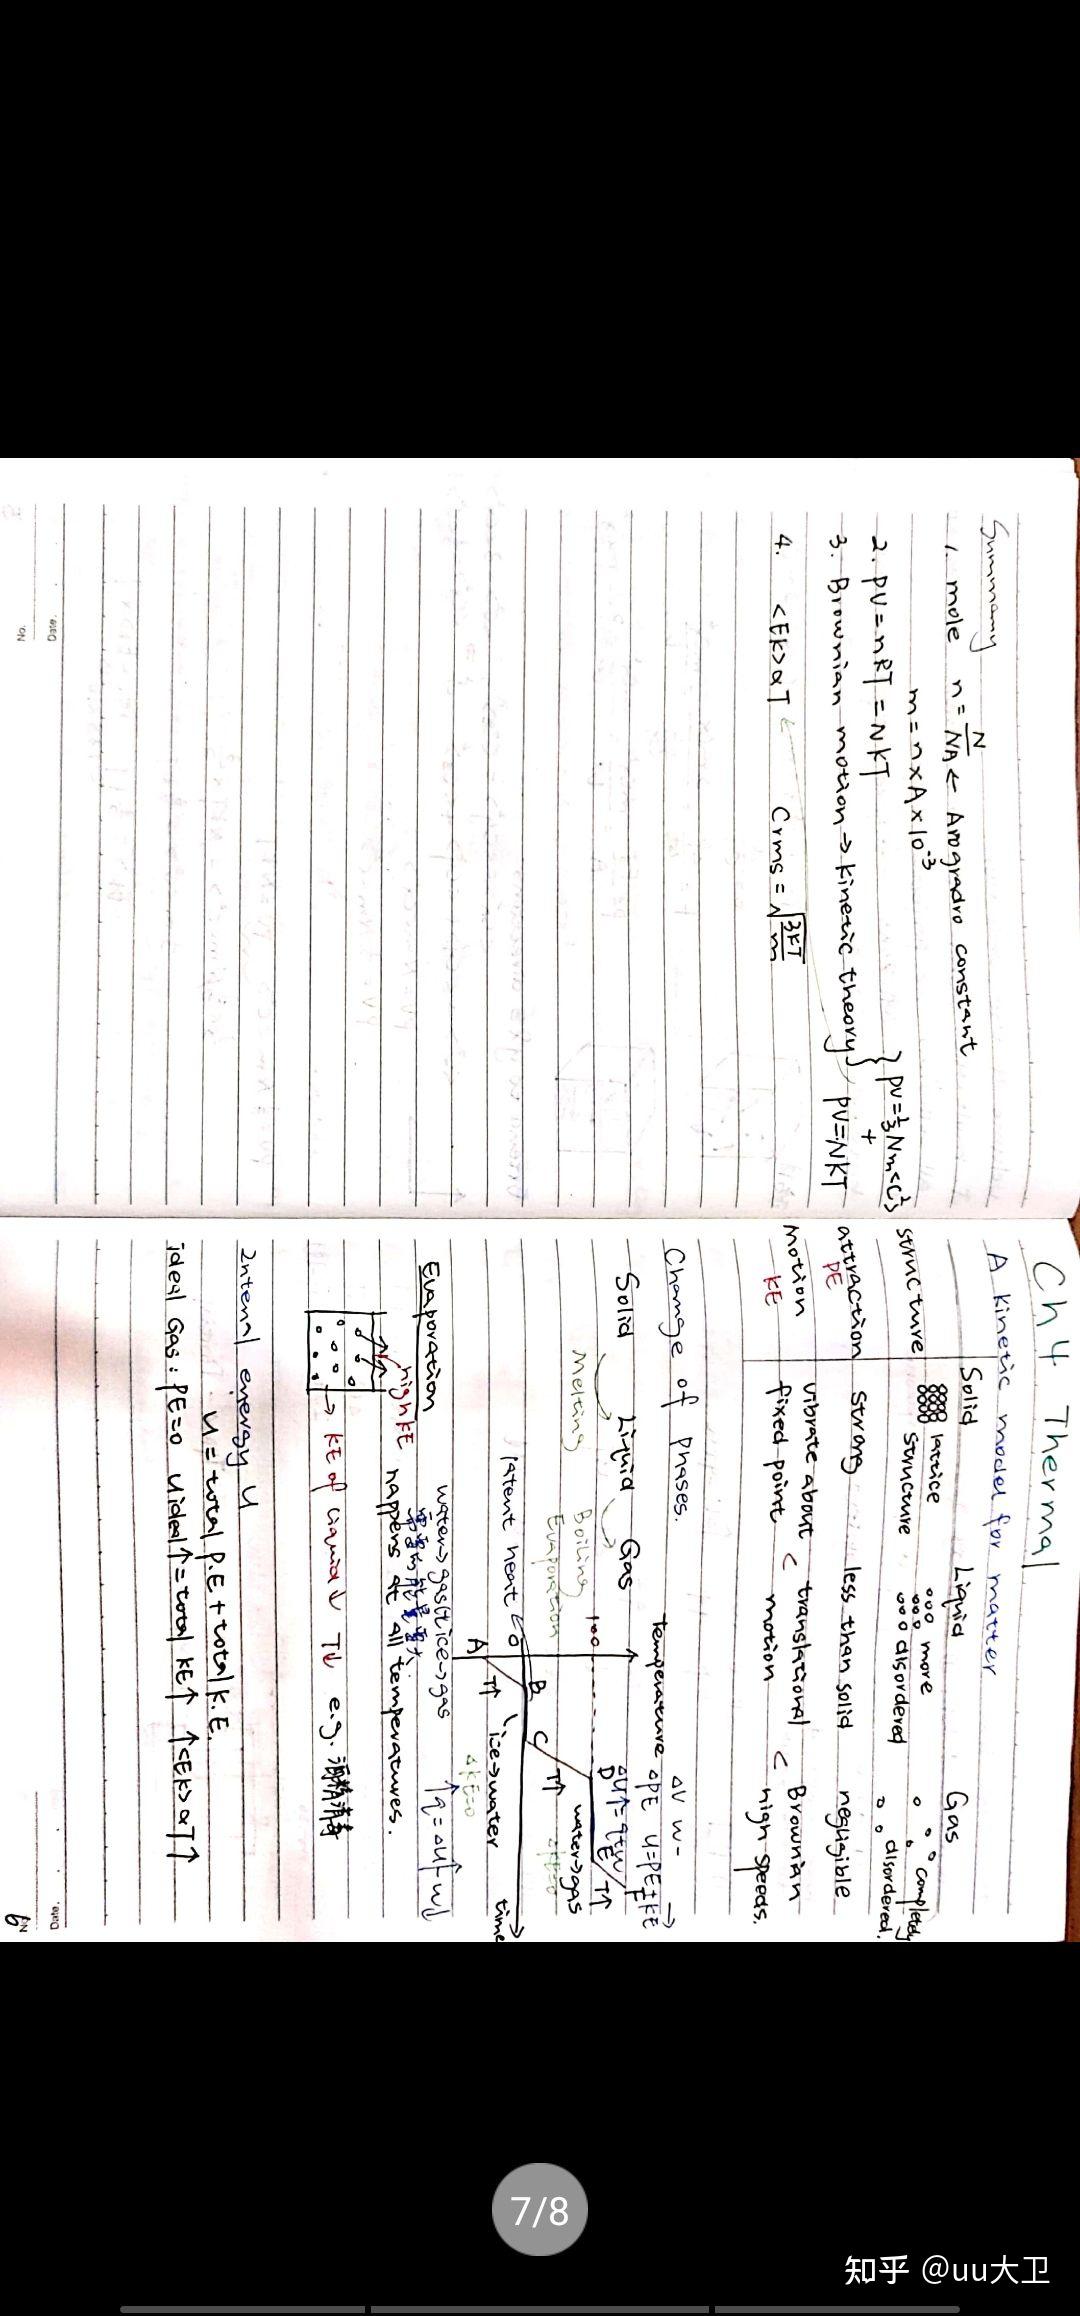 Summary
1. mole n = N/NA ← Avogradro constant
m = n × A × 10⁻³
2. PV = nRT = NKT
3. Brownian motion → kinetic theory } PV = ⅓Nm<C²>
+
PV = NKT
4. <Ek> α T ← Crms = √(3KT/m)
No.
Date.
Ch4 Thermal
A kinetic model for matter
Solid Liquid Gas
structure lattice structure more disordered completely disordered.
attraction strong less than solid negligible
PE
Motion vibrate about fixed point < translational motion < Brownian high speeds.
KE
Change of phases.
Solid Liquid Gas
Melting Boiling
Evaporation
Temperature
ΔV W -
ΔPE U=PE+KE
ΔU↑=q+w
100
0
A B C D E F
T↑ T↑ T↑
latent heat
ice→water
water→gas
ΔKE=0
ΔKE=0
time
water→gas(ice→gas
↑q = ΔU↑ - w↓
Evaporation happens at all temperatures.
high KE
→ KE of liquid ↓ T↓ e.g.
Internal energy U
U = total P.E + total K.E.
ideal Gas: PE=0 Uideal↑ = total KE↑ ↑<Ek> α T↑
No.
6
Date.
7/8
知乎 @uu大卫